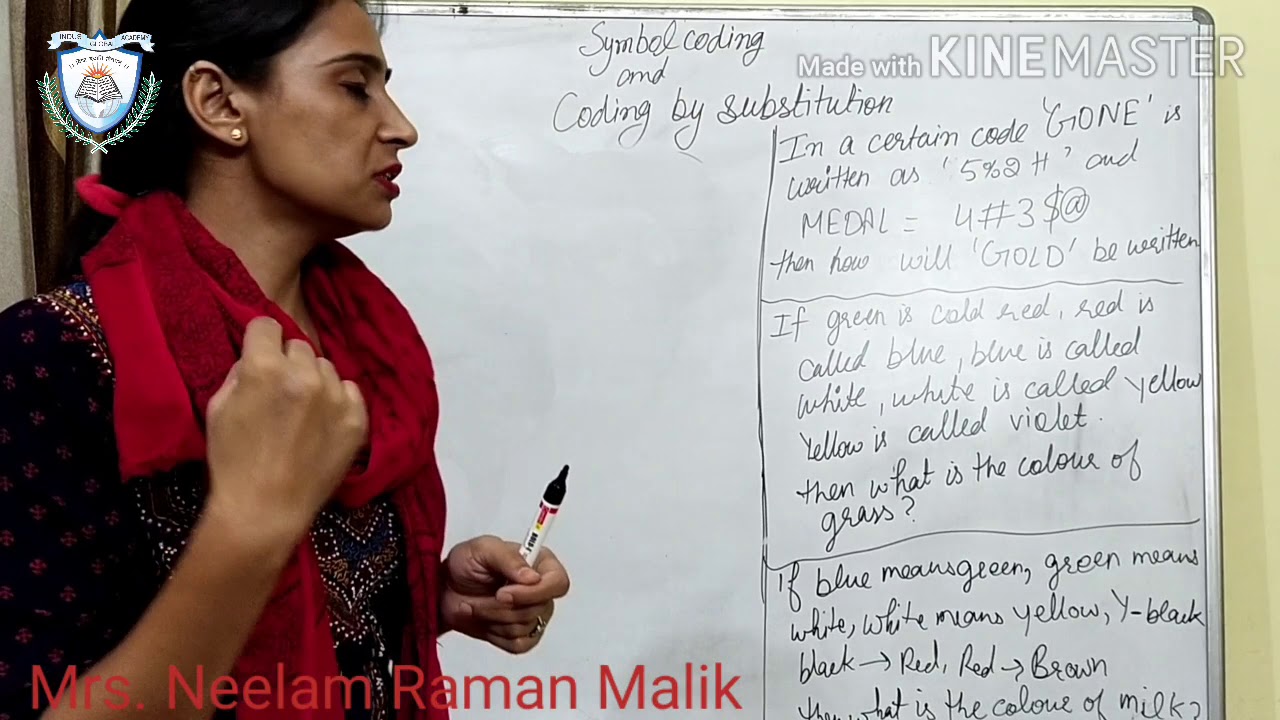 INDUS GLOBAL ACADEMY
Made with KINEMASTER
Symbol coding
and
Coding by substitution
In a certain code 'GONE' is
written as '5%2#' and
MEDAL = 4#3$@
then how will 'GOLD' be written
If green is cald red, red is
called blue, blue is called
white, white is called yellow
Yellow is called violet.
then what is the colour of
grass?
If blue means green, green means
white, white means yellow, Y-black
black → Red, Red → Brown
then what is the colour of milk?
Mrs. Neelam Raman Malik